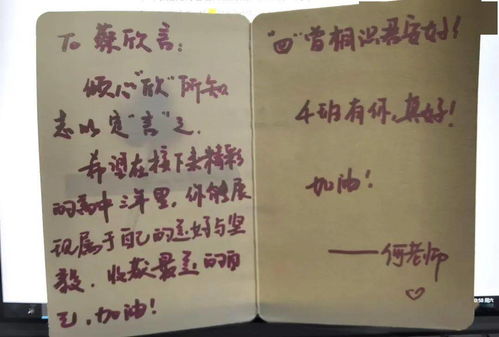 To 蘇欣言：
倾心“欣”所知
志以定“言”之.
希望在接下来精彩
的高中三年里，你能展
现属于自己的美好与坚
毅，收获最美的自
己，加油！
“四”曾相识君安好！
4班有你，真好！
加油！
——何老师